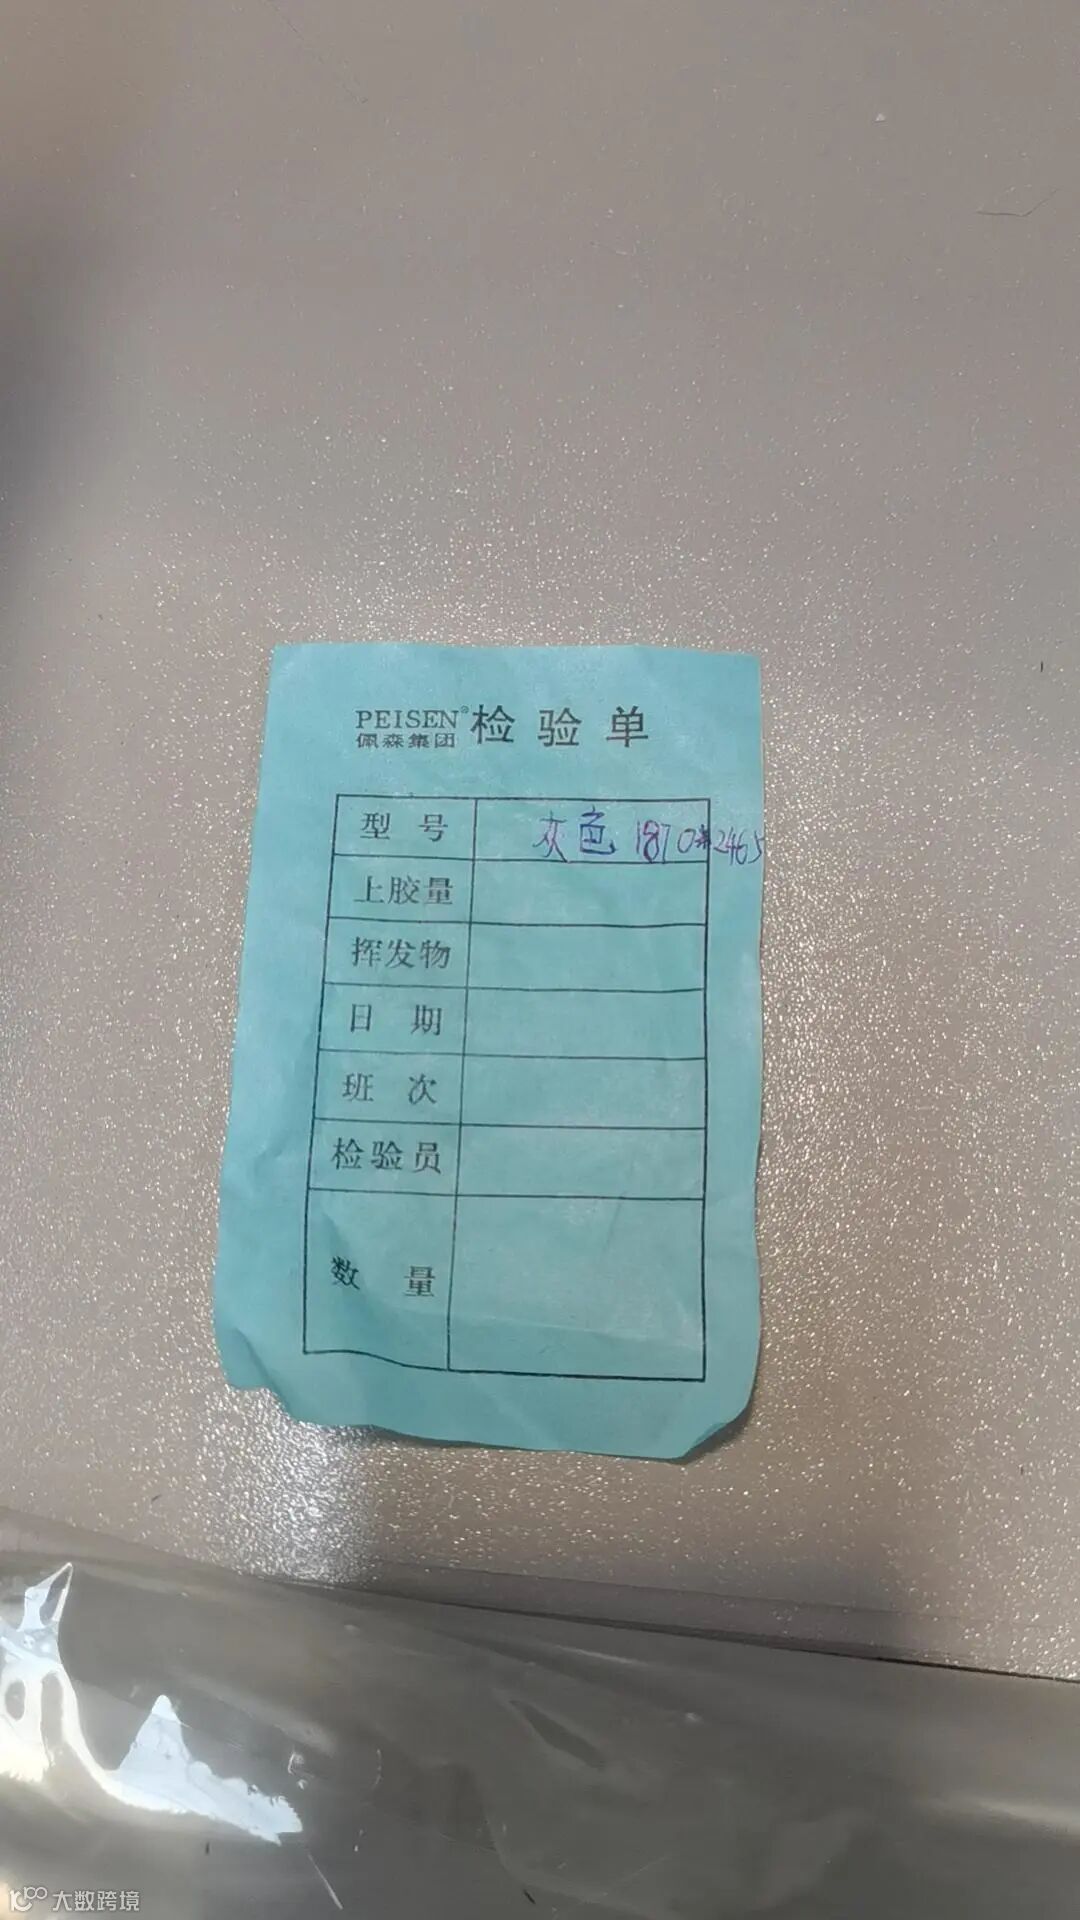 PEISEN® 检验单
佩森集团
型号 灰色 1870*2465
上胶量
挥发物
日期
班次
检验员
数量
大数跨境